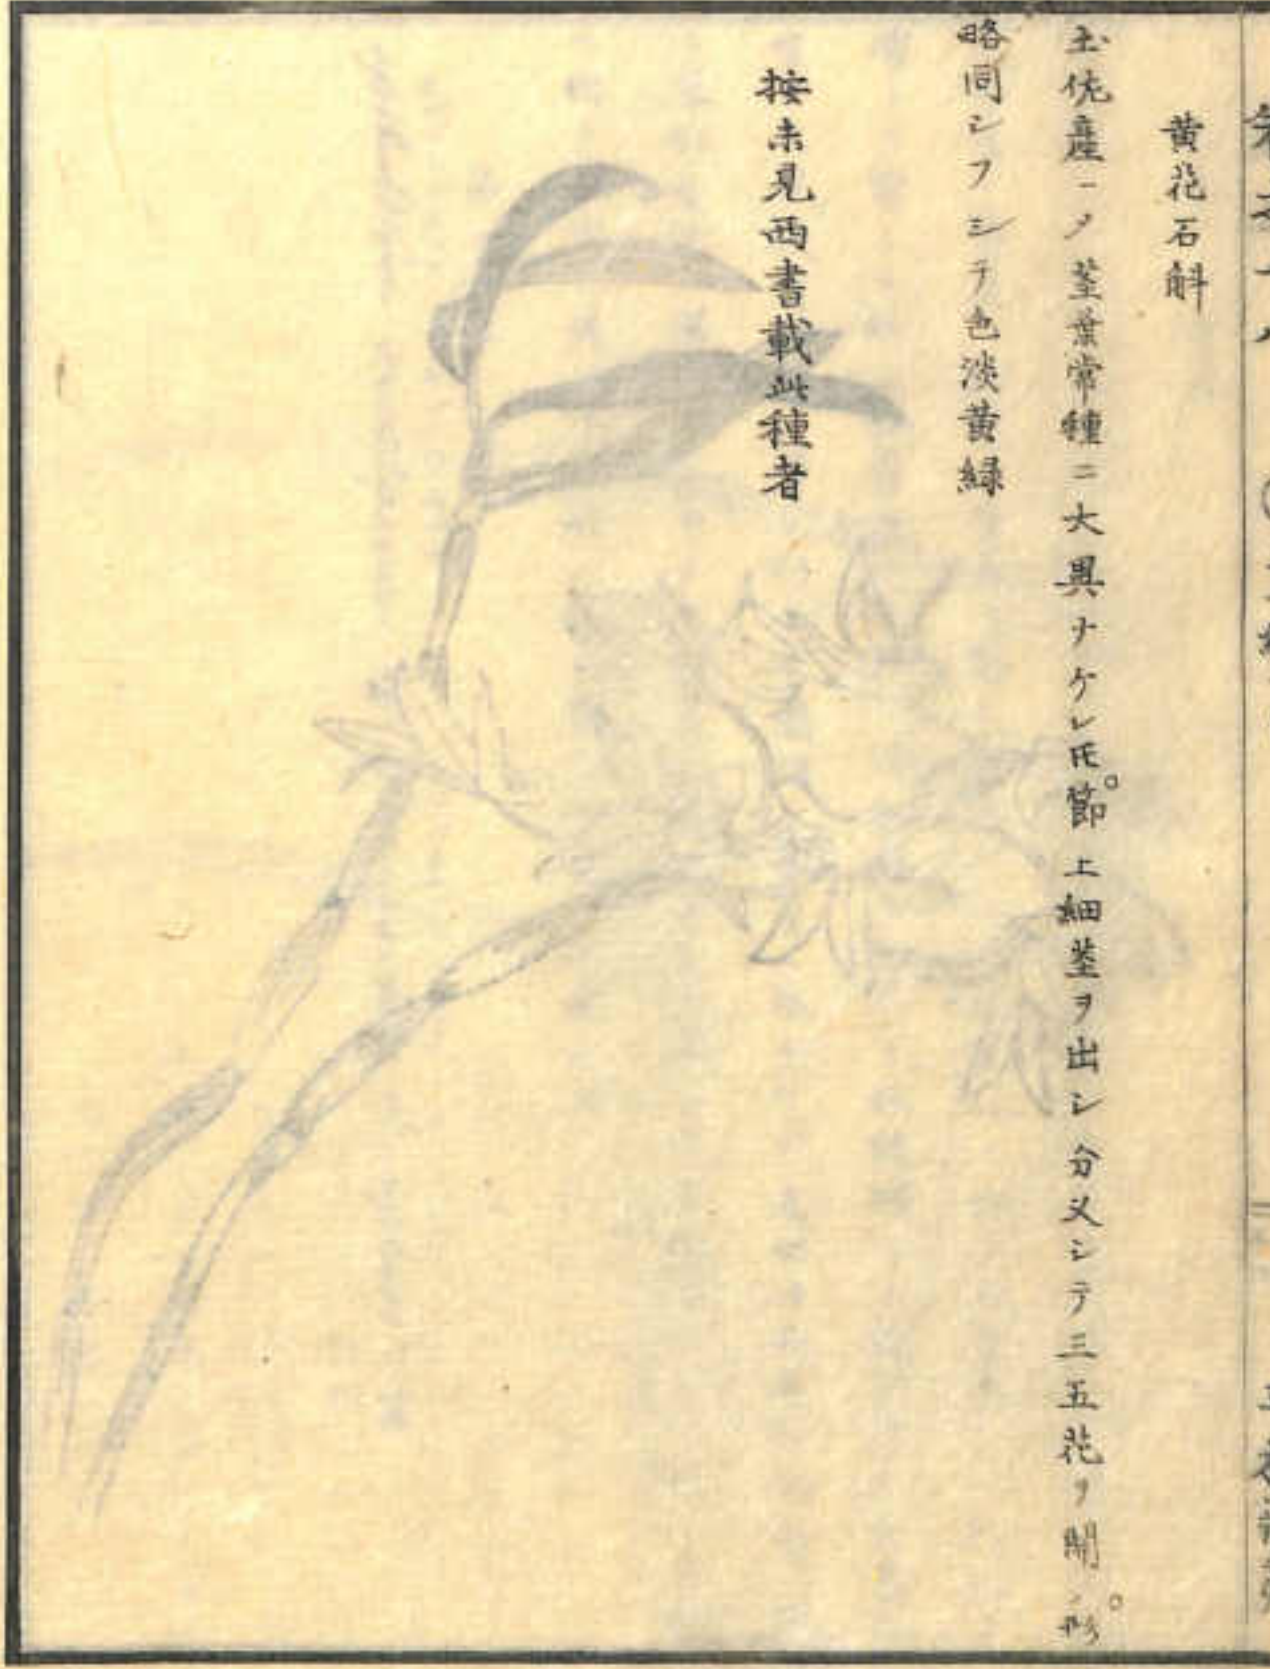 黄花石斛
土佐産ニ〆茎葉常種ニ大異ナケレ𪜈。節上細茎ヲ出シ分叉シテ三五花ヲ開ク。形
略同シフシテ色淡黄緑
按未見西書載此種者